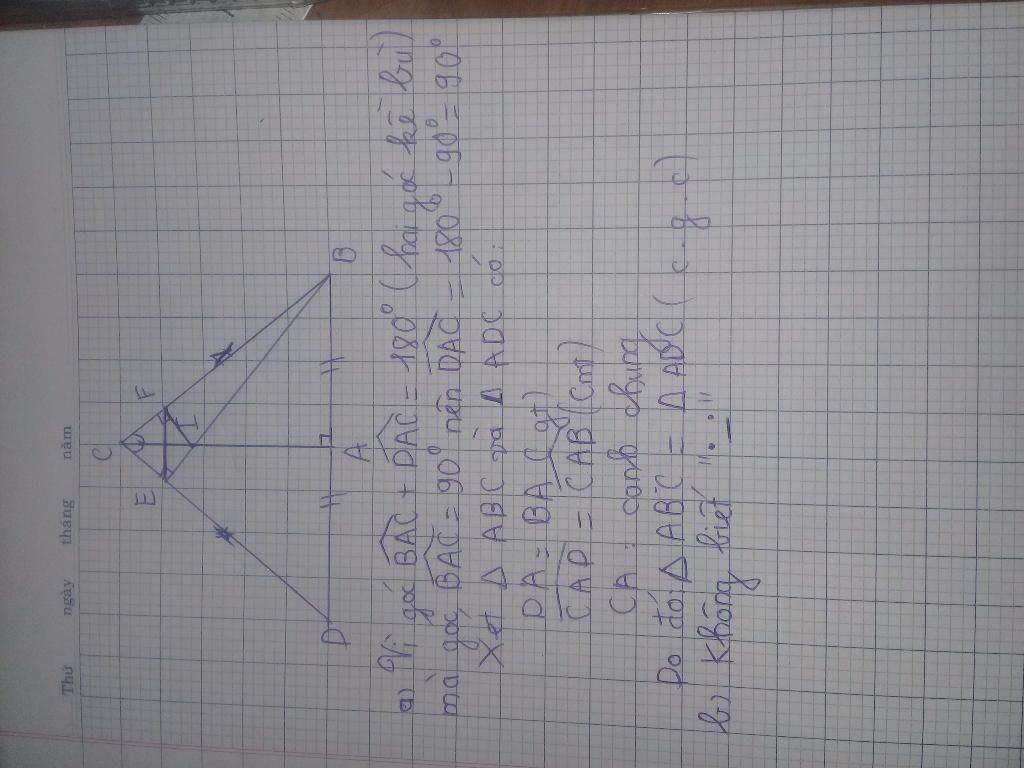 Thứ ngày tháng năm
C
E F
I
D A B
a) Vì góc BAC + DAC = 180° (hai góc kề bù)
mà góc BAC = 90° nên DAC = 180° - 90° = 90°
Xét Δ ABC và Δ ADC có:
DA = BA (gt)
CAD = CAB (cmt)
CA: cạnh chung
Do đó: Δ ABC = Δ ADC (c.g.c)
b) Không biết